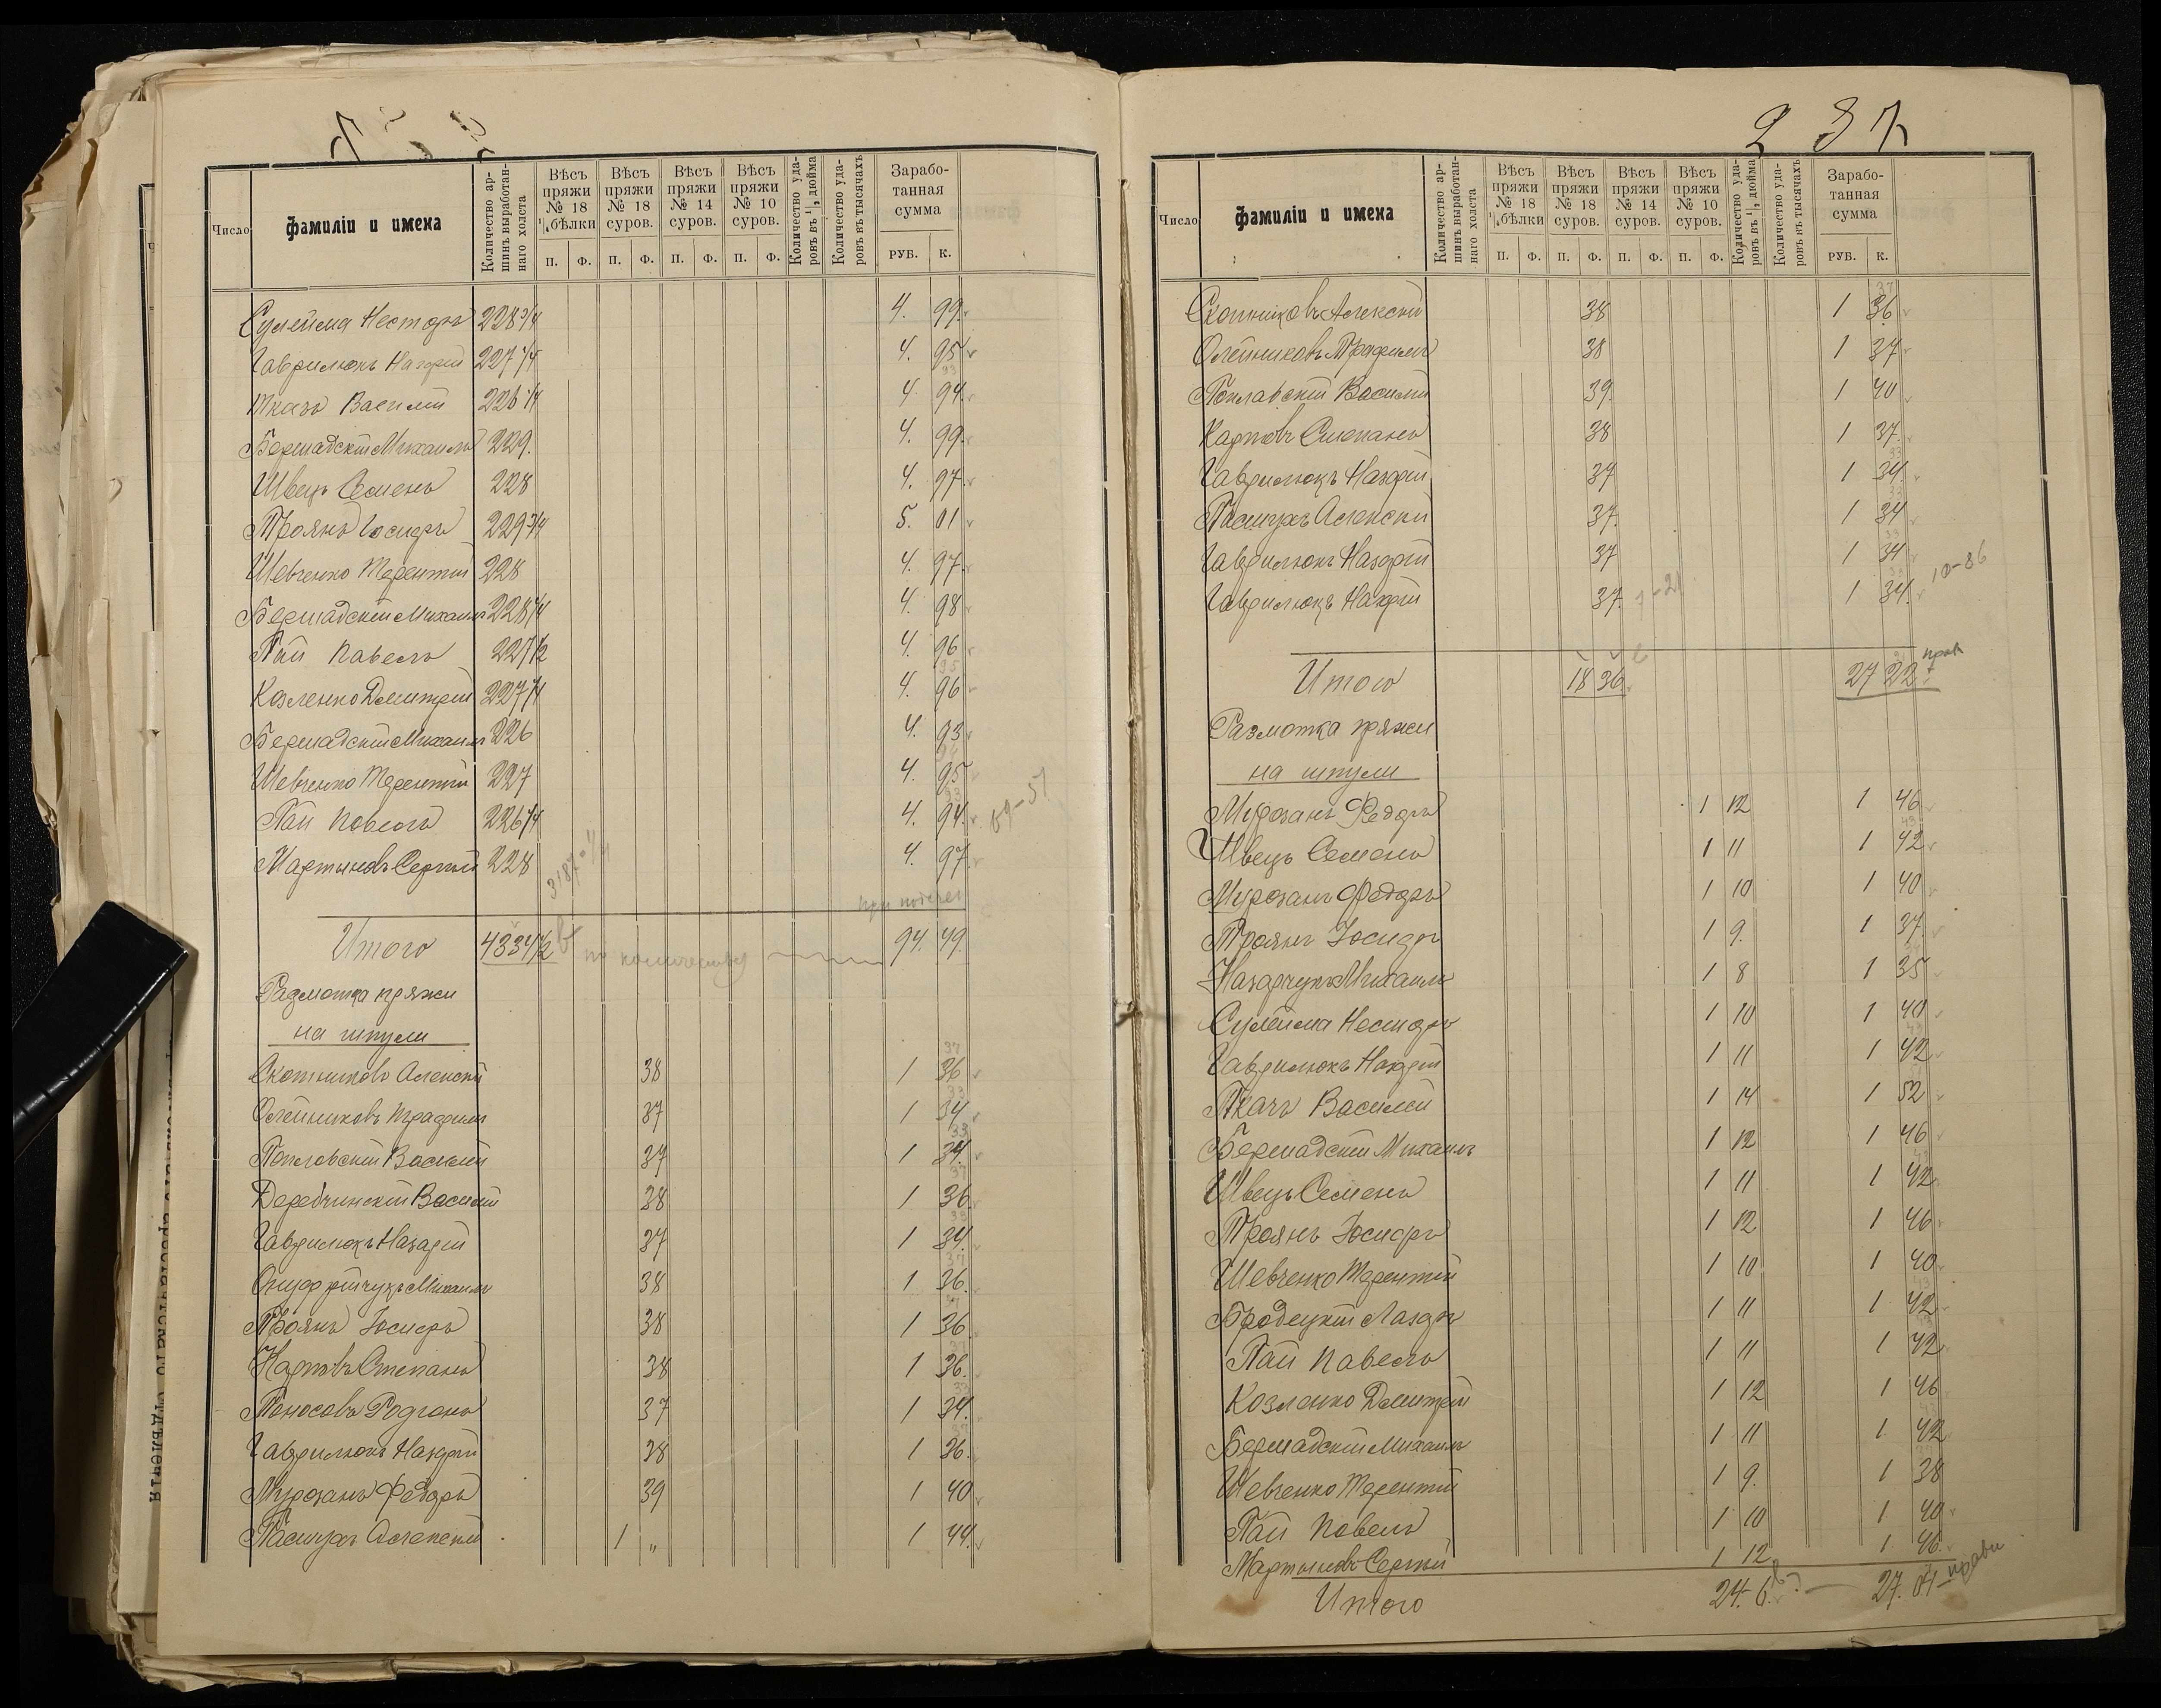 237
Число
Фамиліи и имена
Количество ар-
шинъ выработан-
наго холста
Вѣсъ пряжи № 18 ½ бѣлки П. Ф.
Вѣсъ пряжи № 18 суров. П. Ф.
Вѣсъ пряжи № 14 суров. П. Ф.
Вѣсъ пряжи № 10 суров. П. Ф.
Количество уда-
ровъ въ ¼ дюйма
Количество уда-
ровъ въ тысячахъ
Зарабо-
танная
сумма
РУБ. К.
Сулейма Несторъ 228 3/4 4. 99.
Гаврилюкъ Назарій 227 1/4 4. 95
Ткачъ Василій 226 1/4 4 94.
Бершадскій Михаилъ 229. 4. 99.
Швецъ Семенъ 228 4. 97.
Троянъ Іосифъ 229 3/4 5. 01
Шевченко Терентій 228 4. 97.
Бершадскій Михаилъ 228 1/4 4. 98
Пай Павелъ 227 1/2 4. 96
Козленко Дмитрій 227 1/4 4. 96
Бершадскій Михаилъ 226 4. 93
Шевченко Терентій 227 4. 95
Пай Павелъ 226 1/4 4. 94.
Мартыновъ Сергѣй 228 4. 97
69-51
3187-1/4
при подсчет
Итого 4334 1/2 по количеству 94. 49.
Размотка пряжи
на шпули
Скотниковъ Алексѣй 38 1 36
Олейниковъ Трафимъ 37 1 34
Поплавскій Василій 37 1 34.
Деребчинскій Василій 38 1 36
Гаврилюкъ Назарій 37 1 34.
Онуфрійчукъ Михаилъ 38 1 36.
Троянъ Іосифъ 38 1 36
Карповъ Степанъ 38 1 36.
Поносовъ Родіонъ 37 1 34.
Гаврилюкъ Назарій 38 1 36.
Мурозанъ Федоръ 39 1 40
Пастухъ Алексѣй 1 „ 1 44.
Число
Фамиліи и имена
Количество ар-
шинъ выработан-
наго холста
Вѣсъ пряжи № 18 ½ бѣлки П. Ф.
Вѣсъ пряжи № 18 суров. П. Ф.
Вѣсъ пряжи № 14 суров. П. Ф.
Вѣсъ пряжи № 10 суров. П. Ф.
Количество уда-
ровъ въ ¼ дюйма
Количество уда-
ровъ въ тысячахъ
Зарабо-
танная
сумма
РУБ. К.
Скотниковъ Алексѣй 38 1 36
Олейниковъ Трафимъ 38 1 37
Поплавскій Василій 39. 1 40
Карповъ Степанъ 38 1 37.
Гаврилюкъ Назарій 37 1 34.
Пастухъ Алексѣй 37. 1 34
Гаврилюкъ Назарій 37 1 34
Гаврилюкъ Назарій 37. 1 34.
10-86
Итого 18 36. 27 22
Размотка пряжи
на шпули
Мурозанъ Федоръ 1 12 1 46
Швецъ Семенъ 1 11 1 42
Мурозанъ Федоръ 1 10 1 40
Троянъ Іосифъ 1 9. 1 37
Назарчукъ Михаилъ 1 8 1 35
Сулейма Несторъ 1 10 1 40
Гаврилюкъ Назарій 1 11 1 42
Ткачъ Василій 1 14 1 52
Бершадскій Михаилъ 1 12 1 46
Швецъ Семенъ 1 11 1 42
Троянъ Іосифъ 1 12 1 46
Шевченко Терентій 1 10 1 40
Бродецкій Лазарь 1 11 1 42
Пай Павелъ 1 11 1 42
Козленко Дмитрій 1 12 1 46
Бершадскій Михаилъ 1 11 1 42
Шевченко Терентій 1 9. 1 38
Пай Павелъ 1 10 1 40
Мартыновъ Сергѣй 1 12 1 46.
Итого 24. 6. 27. 04